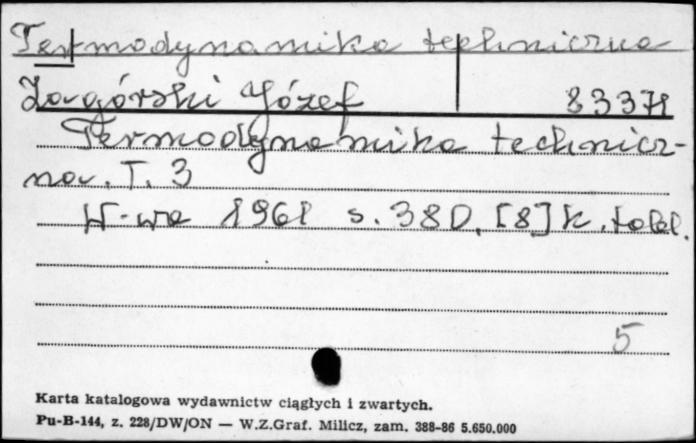 Termodynamika techniczna
Zagórski Józef 83371
Termodynamika technicz-
na. T. 3
W-wa 1961 s. 380, [8] k. tabl.
5
Karta katalogowa wydawnictw ciągłych i zwartych.
Pu-B-144, z. 228/DW/ON — W.Z.Graf. Milicz, zam. 388-86 5.650.000